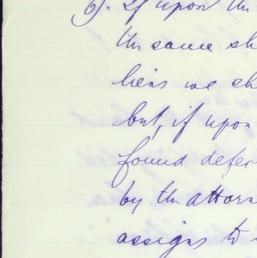 6). If upon the
the same sh
liens we sh
but, if upon
found defec
by the attorn
assigns to